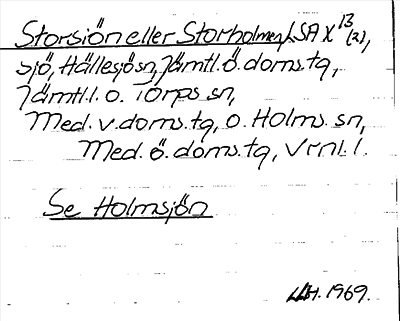 Storsjön eller Storholmen, SA X 13 (2),
sjö, Hällesjö sn, Jämtl. ö. doms. tg,
Jämtl. l. o. Torps sn,
Med. v. doms. tg, o. Holms. sn,
Med. ö. doms. tg, Vrnl. l.
Se Holmsjön
1969.